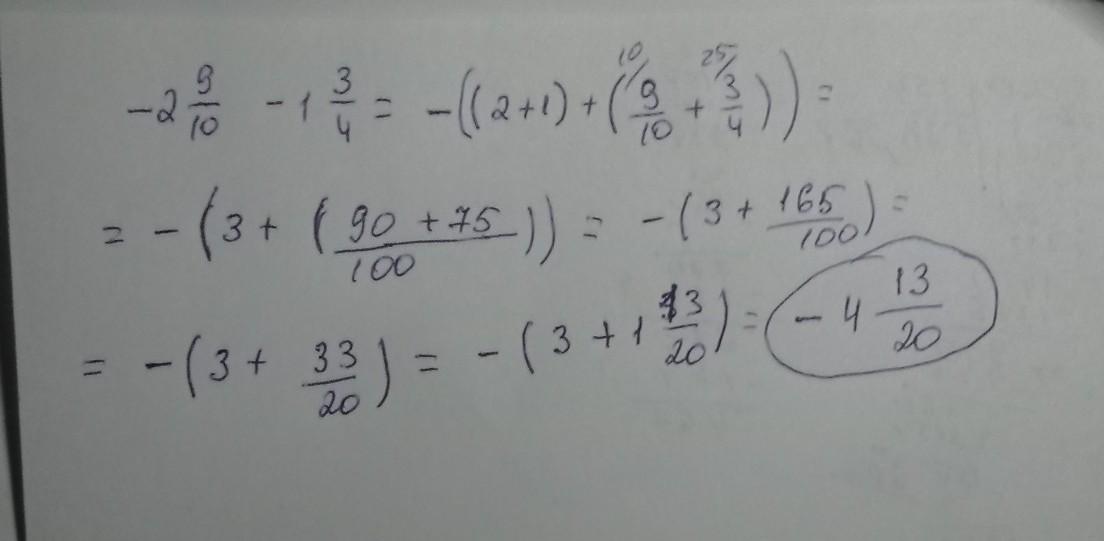 -2 9/10 - 1 3/4 = -((2+1) + (10/ 9/10 + 25/ 3/4)) =
= -(3 + (90+75/100)) = -(3 + 165/100) =
= -(3 + 33/20) = -(3 + 1 13/20) = -4 13/20